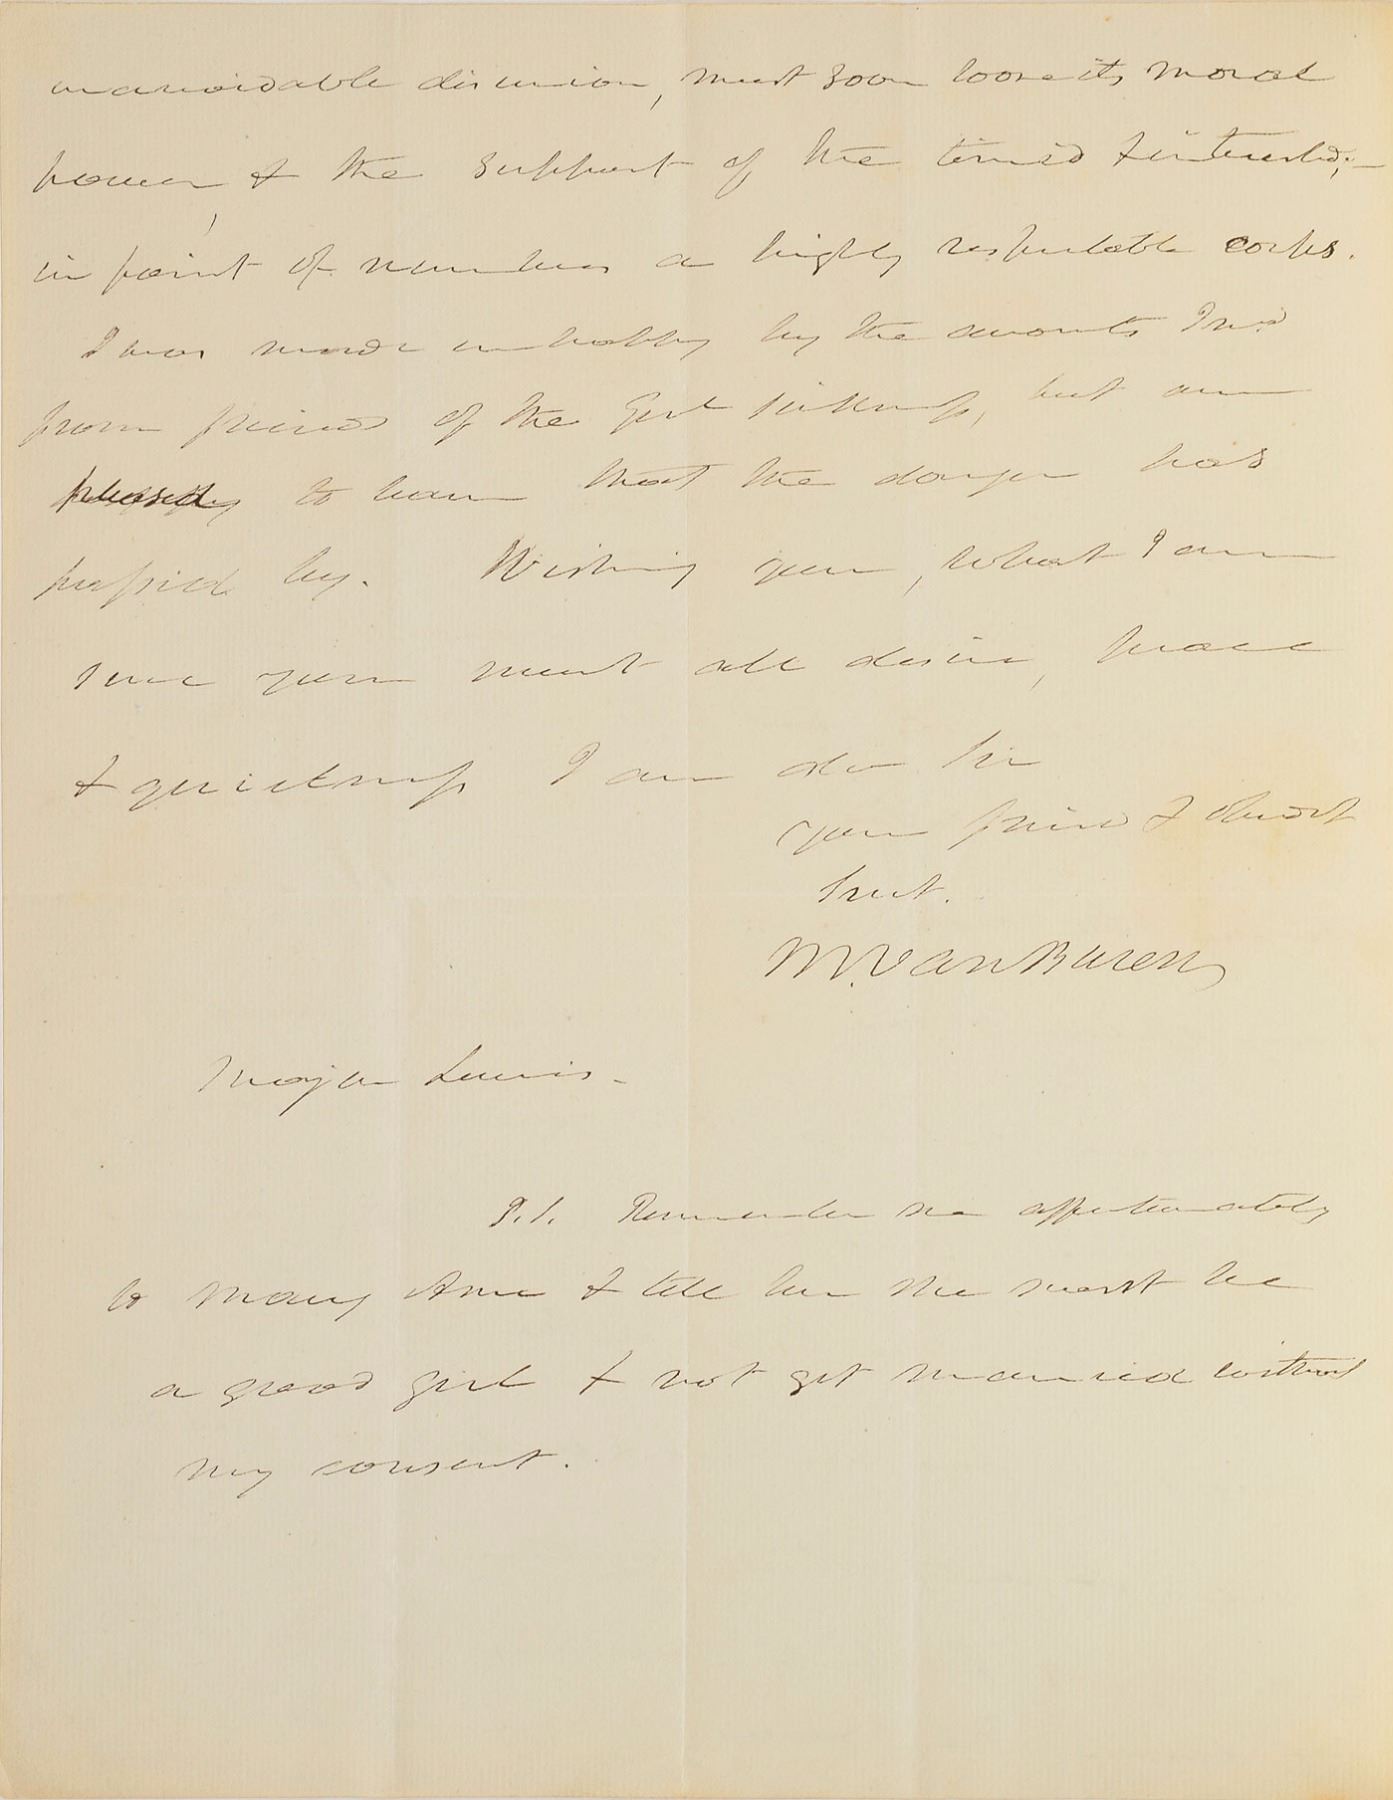 unavoidable disunion, must soon loose its moral
power, & the support of the timid & interested;—
in point of numbers a highly respectable corps.
I was made unhappy by the accounts I recd
from friends of the Genl sickness, but am
pleased to learn that the danger has
passed by. Wishing you, what I am
sure you must all desire, peace
& quietness I am dr Sir
your friend & obedt
Servt.
M. Van Buren
Major Lewis.
P.S. Remember me affectionately
to Mary Ann & tell her she must be
a good girl & not get married without
my consent.